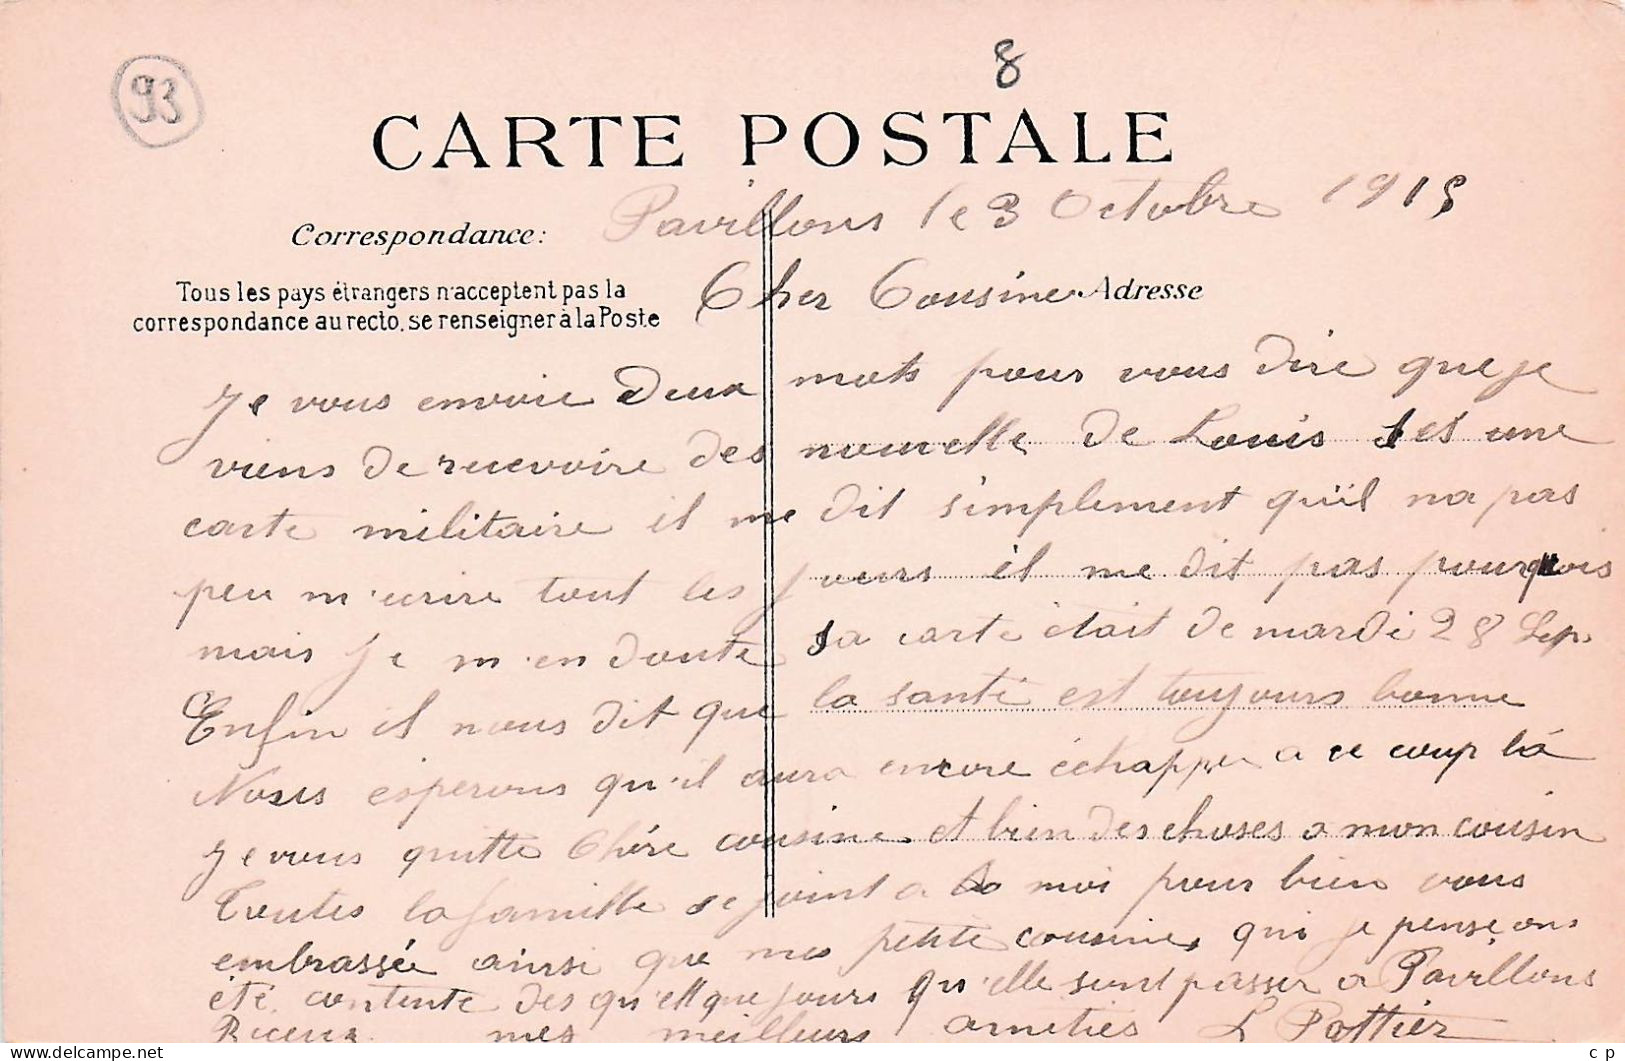 93
8
CARTE POSTALE
Pavillons le 3 Octobre 1915
Correspondance:
Tous les pays étrangers n'acceptent pas la
correspondance au recto, se renseigner à la Poste
Cher Cousine
Adresse
Je vous envoie Deux mots pour vous dire que je
viens de recevoire des nouvelle de Louis s'est une
carte militaire il me dit simplement qu'il na pas
peu m'ecrire tout les jours il me dit pas pourquois
mais je m'en doute sa carte était de mardi 28 Sep.
Enfin il nous dit que la santé est toujours bonne
Nous esperons qu'il aura encore échapper a ce coup là
Je vous quitte Chére cousine et bien des choses a mon cousin
Toutes la famille se joint a moi pour bien vous
embrassée ainsi que mes petite cousines qui je pense ons
été contente des quellque jours qu'elle sont passer a Pavillons
Recevez mes meilleurs amitiés L Pottier
c p